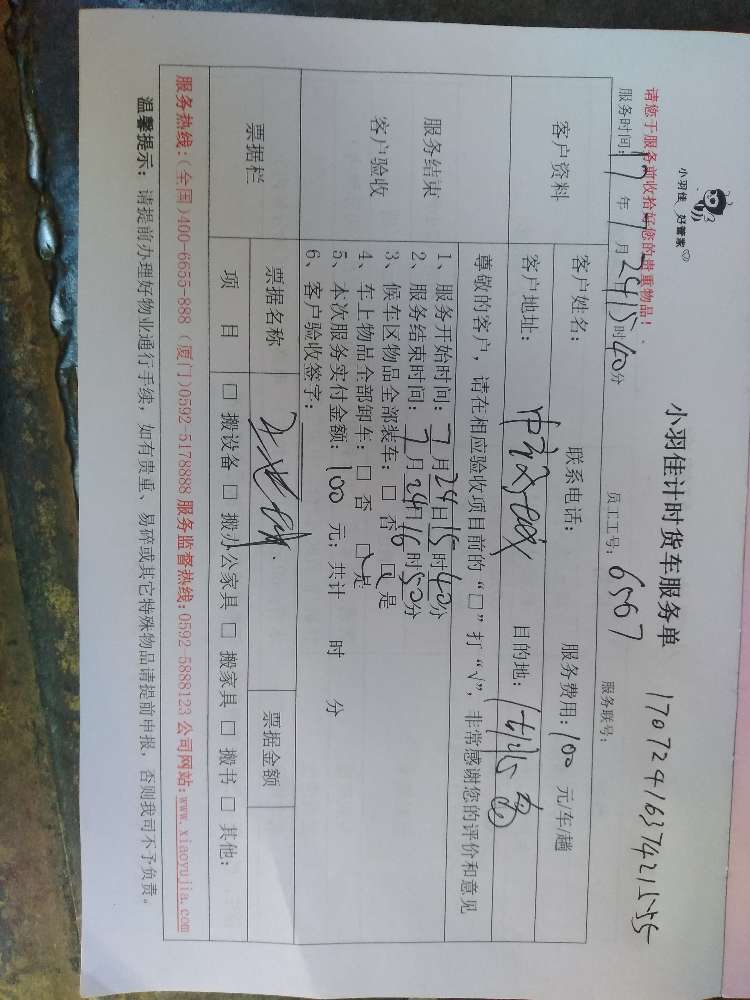 小羽佳 好管家
小羽佳计时货车服务单
170724163742155
请您于服务前收拾好您的贵重物品！
服务时间：17年7月24 15时40分 员工工号：6567 服务联号：
客户资料
客户姓名： 联系电话： 服务费用：100 元/车/趟
客户地址： 目的地：
服务结束
客户验收
尊敬的客户，请在相应验收项目前的“□”打“√”，非常感谢您的评价和意见
1、服务开始时间：7月24日15时40分
2、服务结束时间：7月24日16时50分
3、候车区物品全部装车：□ 否 □ 是
4、车上物品全部卸车：□ 否 □ 是
5、本次服务实付金额：100 元；共计 时 分
6、客户验收签字：
票据栏
票据名称 票据金额
项 目 □ 搬设备 □ 搬办公家具 □ 搬家具 □ 搬书 □ 其他：
服务热线：(全国)400-6655-888 (厦门)0592-5178888 服务监督热线：0592-5888123 公司网站：www.xiaoyujia.com
温馨提示：请提前办理好物业通行手续，如有贵重、易碎或其它特殊物品请提前申报，否则我司不予负责。